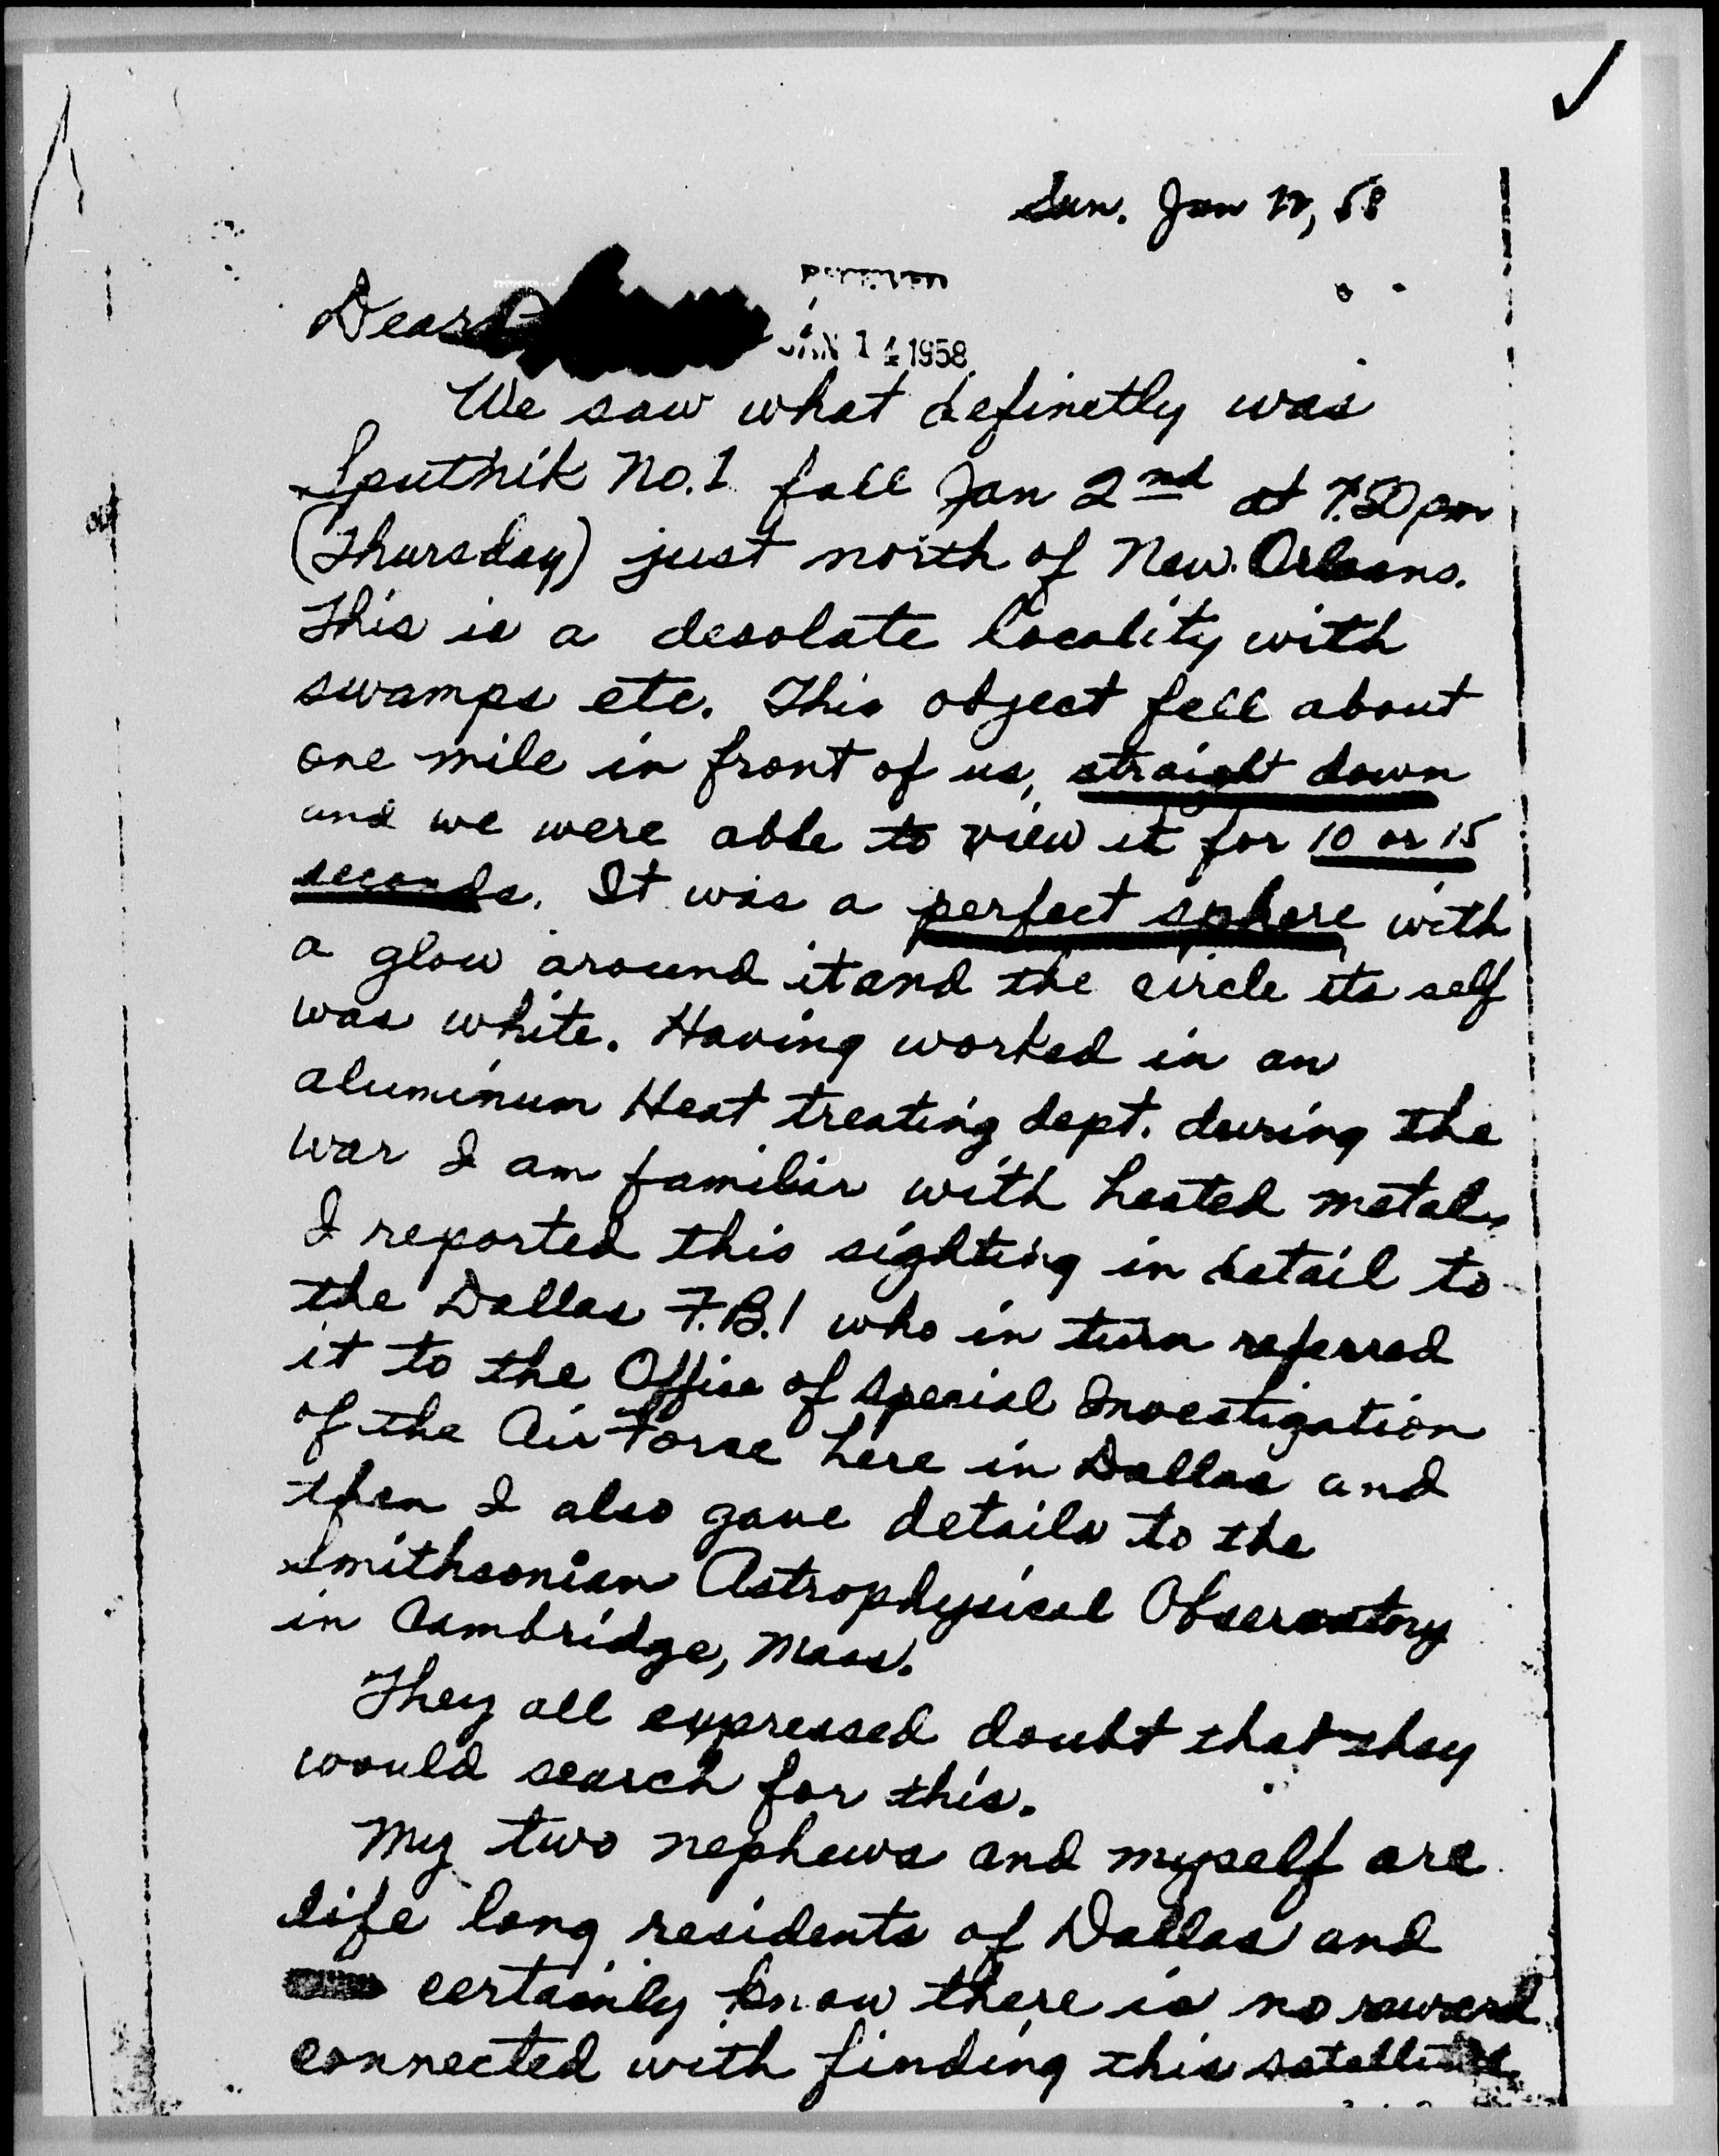 Sun. Jan 12, 58
Dear
JAN 14 1958
We saw what definetly was
Sputnik No. 1 fall Jan 2nd at pm
(Thursday) just north of New Orleans.
This is a desolate locality with
swamps etc. This object fell about
one mile in front of us, straight down
and we were able to view it for 10 or 15
seconds. It was a perfect sphere with
a glow around it and the circle its self
was white. Having worked in an
aluminum Heat treating dept. during the
war I am familiar with heated metals
I reported this sighting in detail to
the Dallas F.B.I who in turn referred
it to the Office of Special Investigation
of the Air Force here in Dallas and
then I also gave details to the
Smithsonian Astrophysical Observatory
in Cambridge, Mass.
They all expressed doubt that they
would search for this.
My two nephews and myself are
life long residents of Dallas and
certainly know there is no reward
connected with finding this satellite